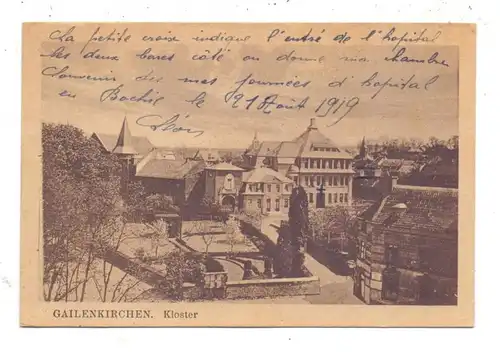 La petite croix indique l'entré de l'hopital
les deux bares côté ou donne ma chambre
Souvenir des mes journées d'hopital
en Bochie le 21 Août 1919
Léon
GAILENKIRCHEN. Kloster